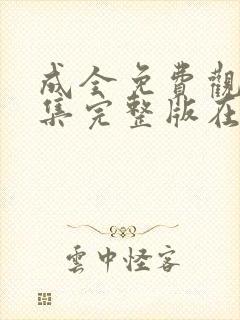 成全免費觀
集完整版在
雲中怪客